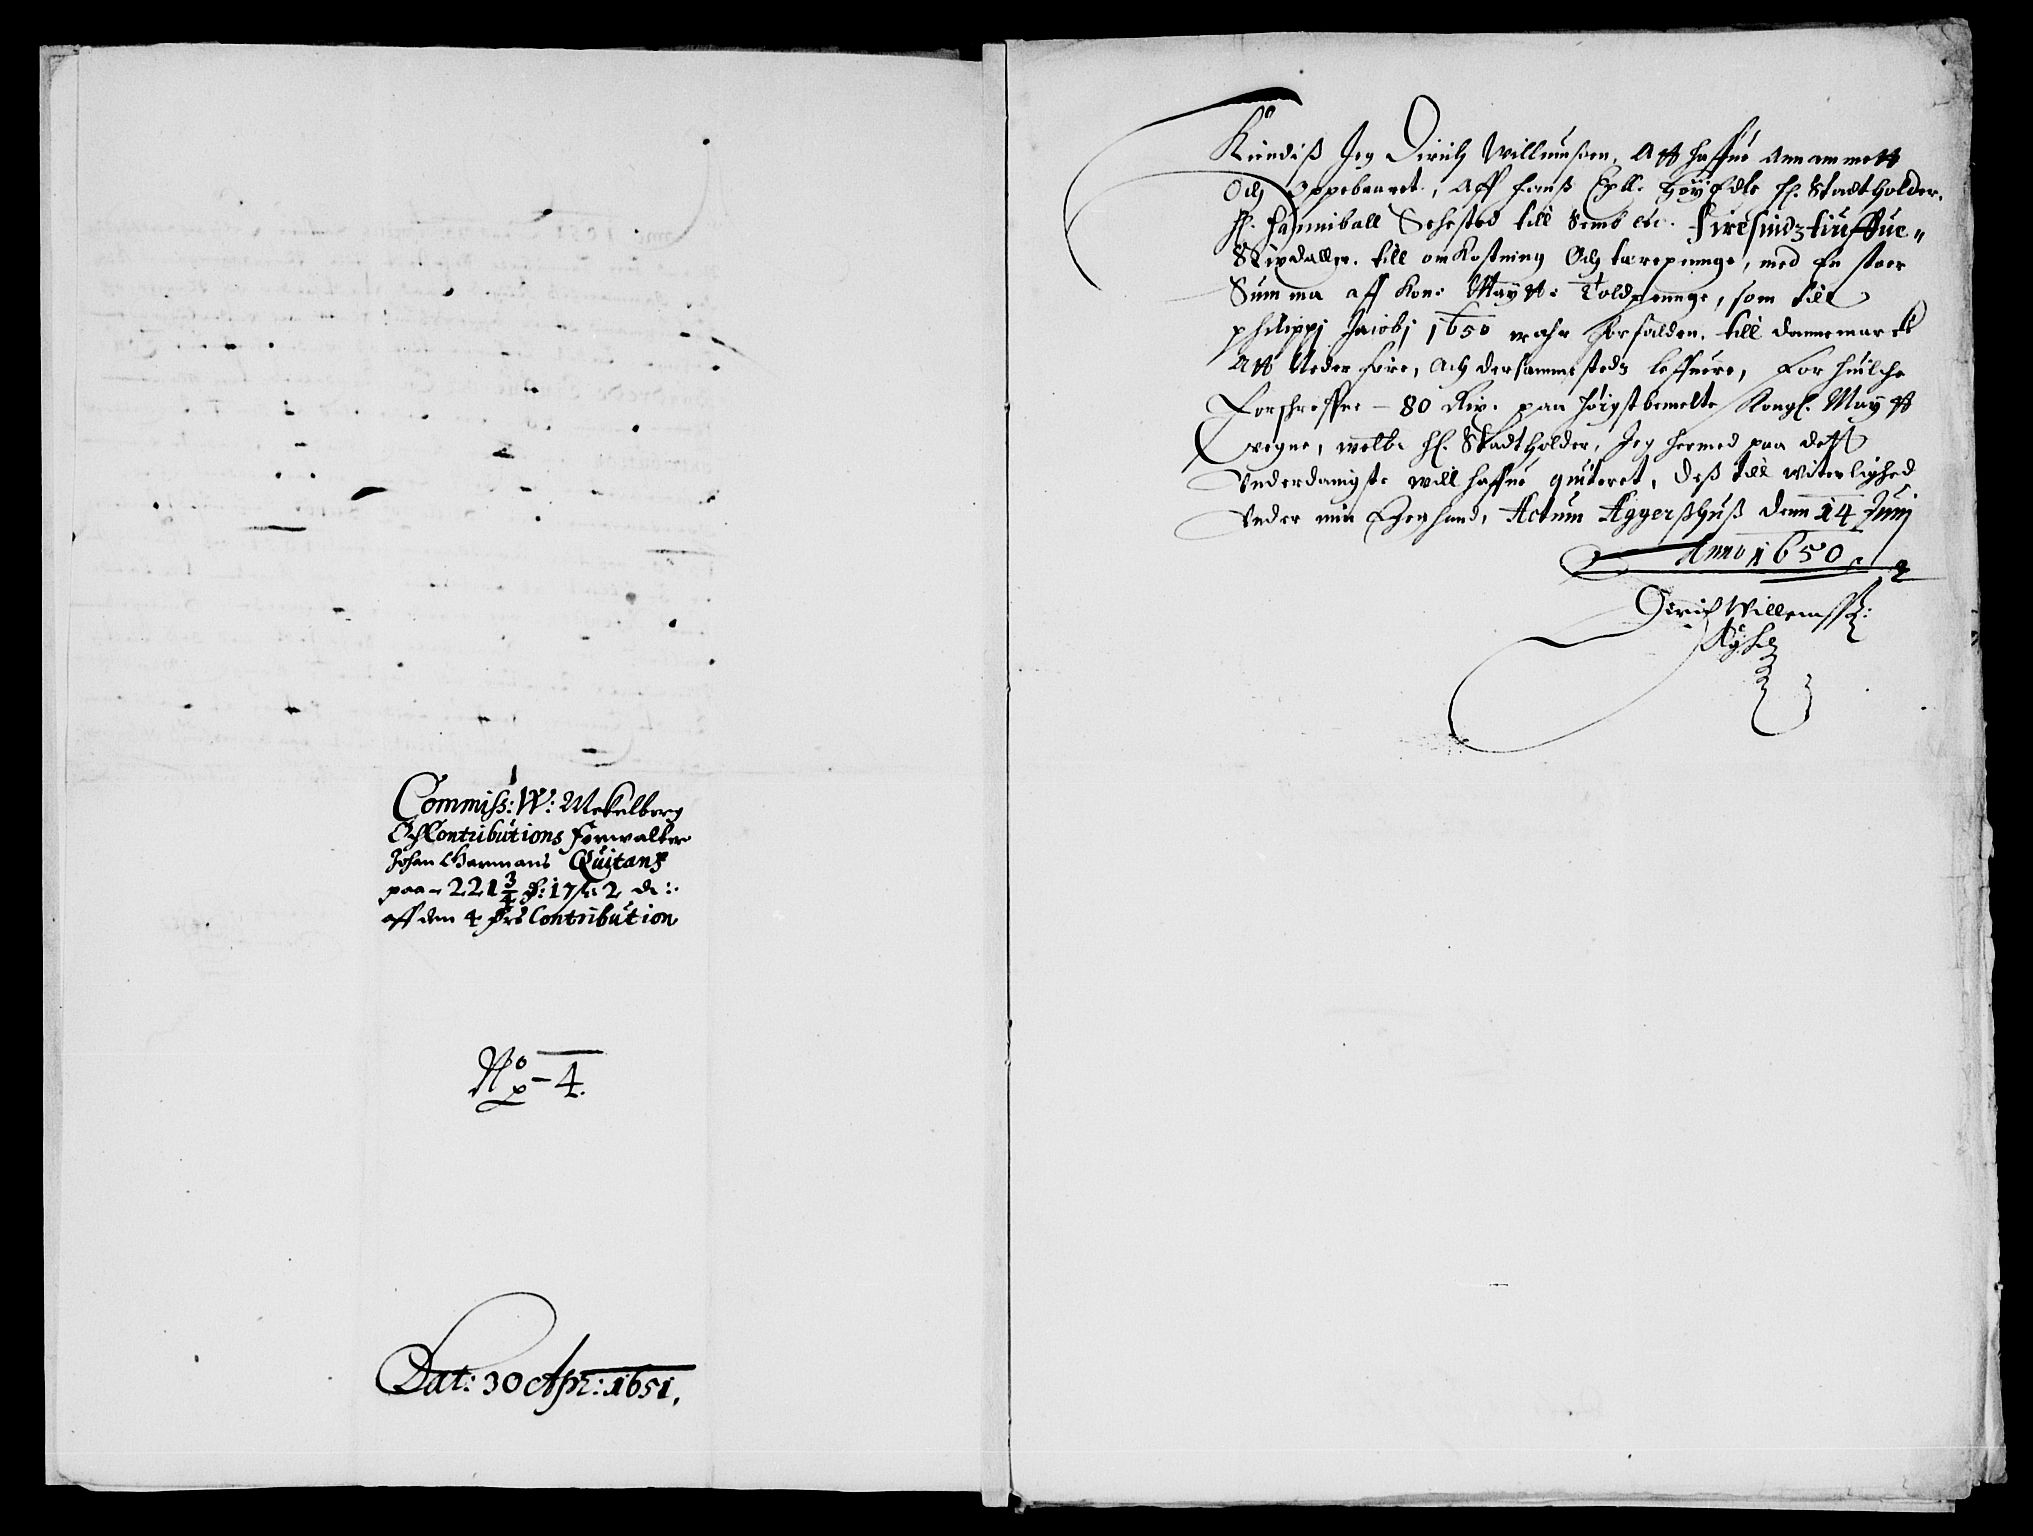 Commiss: W: Mekelberg
Och Contributions forwalter
Johan Garmans Quitans
paa - 221 3/4 : 17 2
aff den 4 Contribution
No - 4.
Dat: 30 Apr: 1651.
Kiendis Jeg Dirich Willumsen, Att haffue Annammett
Och Oppebaaret, Aff Hans Exll: Höyedle H. Stadtholder,
H. Hanniball Sehested till Semb etc. firesindztiuffue
Rixdaller, till omkostning Och tærepennge, med En stoer
Summa aff Kon: Maytt: Toldpennge, som till
philippi Jacobj 1650 wahr forfalden, till dannemarck
Att Neder före, Och dersammestedz leffuere, For huilche
Forschreffne - 80 Rix. paa högstbemelte Kongl. Maytt
vegne, welb: H. Stadtholder, Jeg hermed paa dett
Underdanigste will haffue quiteret, Dess till witerlighed
Under min Egen hand, Actum Aggershuss denn 14 Junj
Anno 1650
Dirich Willemss: